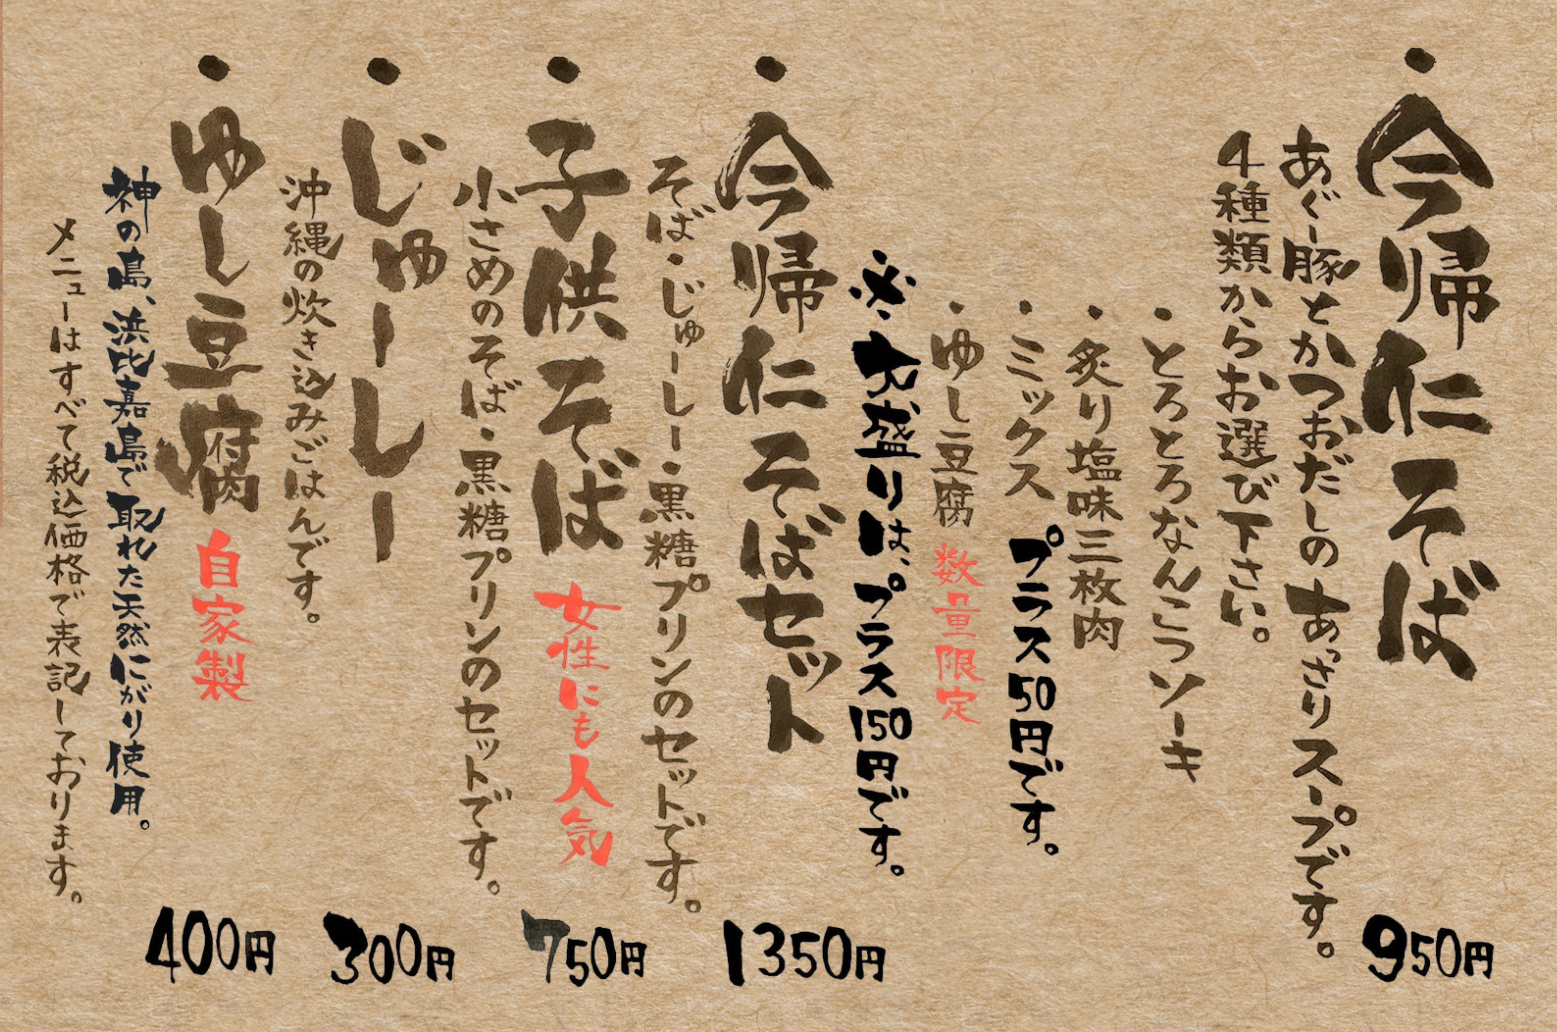 ・今帰仁そば
950円
あぐー豚とかつおだしのあっさりスープです。
4種類からお選び下さい。
・とろとろなんこつソーキ
・炙り塩味三枚肉
・ミックス プラス50円です。
・ゆし豆腐 数量限定
※大盛りは、プラス150円です。
・今帰仁そばセット
1350円
そば・じゅーしー・黒糖プリンのセットです。
・子供そば 女性にも人気
750円
小さめのそば・黒糖プリンのセットです。
・じゅーしー
300円
沖縄の炊き込みごはんです。
・ゆし豆腐 自家製
400円
神の島、浜比嘉島で取れた天然にがり使用。
メニューはすべて税込価格で表記しております。